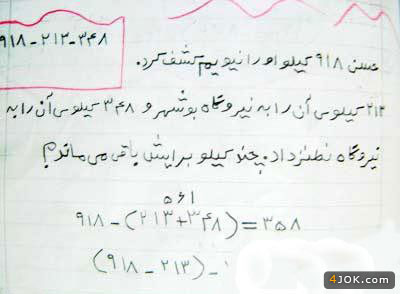 ۹۱۸ - ۲۱۳ - ۳۴۸
حسن ۹۱۸ کیلو اورانیویم کشف کرد.
۲۱۳ کیلوی آن را به نیروگاه بوشهر و ۳۴۸ کیلوی آن را به
نیروگاه نطنز داد. چند کیلو برایش باقی می ماند؟
۵۶۱
۹۱۸ - (۲۱۳+۳۴۸) = ۳۵۸
(۹۱۸ - ۲۱۳) -
4JOK.com